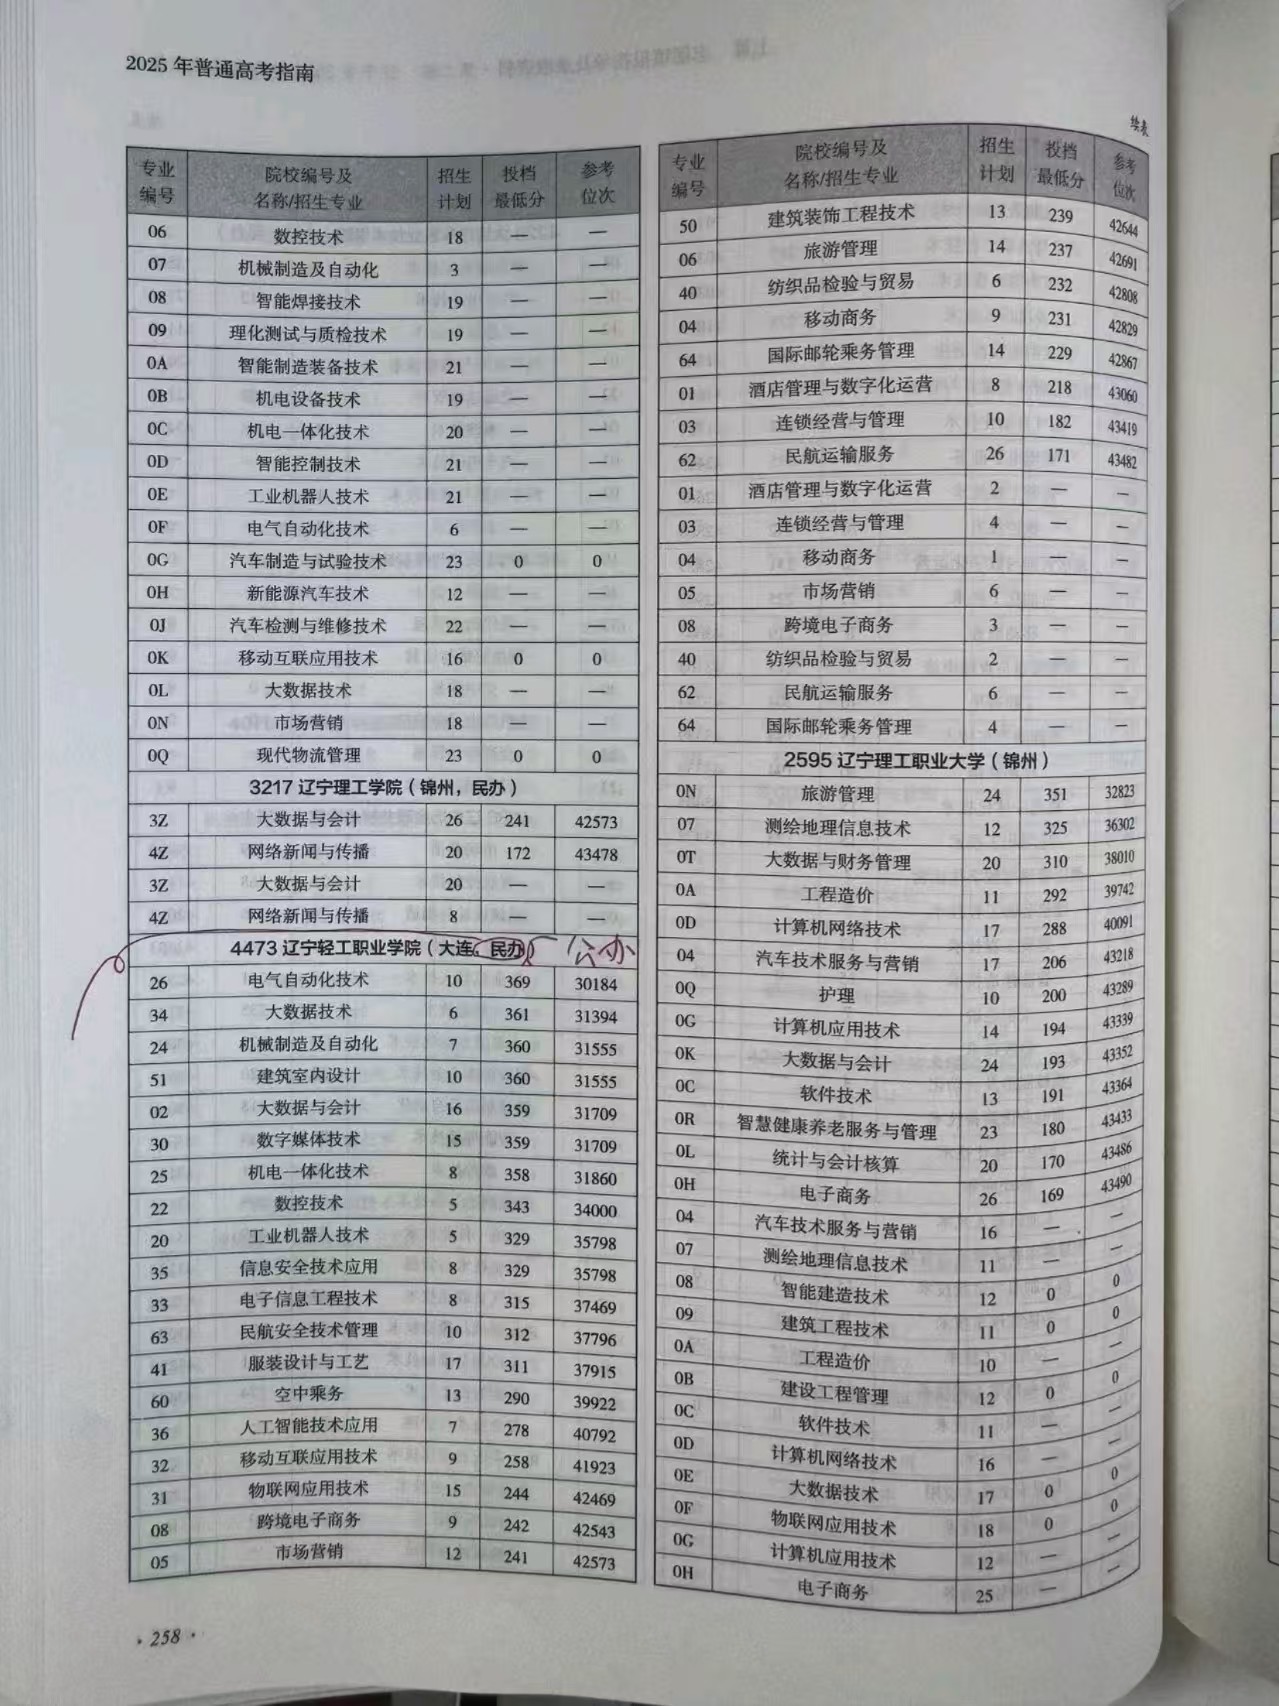 2025 年普通高考指南
续表
专业编号 院校编号及名称/招生专业 招生计划 投档最低分 参考位次
06 数控技术 18 — —
07 机械制造及自动化 3 — —
08 智能焊接技术 19 — —
09 理化测试与质检技术 19 — —
0A 智能制造装备技术 21 — —
0B 机电设备技术 19 — —
0C 机电一体化技术 20 — —
0D 智能控制技术 21 — —
0E 工业机器人技术 21 — —
0F 电气自动化技术 6 — —
0G 汽车制造与试验技术 23 0 0
0H 新能源汽车技术 12 — —
0J 汽车检测与维修技术 22 — —
0K 移动互联应用技术 16 0 0
0L 大数据技术 18 — —
0N 市场营销 18 — —
0Q 现代物流管理 23 0 0
3217 辽宁理工学院（锦州，民办）
3Z 大数据与会计 26 241 42573
4Z 网络新闻与传播 20 172 43478
3Z 大数据与会计 20 — —
4Z 网络新闻与传播 8 — —
4473 辽宁轻工职业学院（大连，民办） 公办
26 电气自动化技术 10 369 30184
34 大数据技术 6 361 31394
24 机械制造及自动化 7 360 31555
51 建筑室内设计 10 360 31555
02 大数据与会计 16 359 31709
30 数字媒体技术 15 359 31709
25 机电一体化技术 8 358 31860
22 数控技术 5 343 34000
20 工业机器人技术 5 329 35798
35 信息安全技术应用 8 329 35798
33 电子信息工程技术 8 315 37469
63 民航安全技术管理 10 312 37796
41 服装设计与工艺 17 311 37915
60 空中乘务 13 290 39922
36 人工智能技术应用 7 278 40792
32 移动互联应用技术 9 258 41923
31 物联网应用技术 15 244 42469
08 跨境电子商务 9 242 42543
05 市场营销 12 241 42573
专业编号 院校编号及名称/招生专业 招生计划 投档最低分 参考位次
50 建筑装饰工程技术 13 239 42644
06 旅游管理 14 237 42691
40 纺织品检验与贸易 6 232 42808
04 移动商务 9 231 42829
64 国际邮轮乘务管理 14 229 42867
01 酒店管理与数字化运营 8 218 43060
03 连锁经营与管理 10 182 43419
62 民航运输服务 26 171 43482
01 酒店管理与数字化运营 2 — —
03 连锁经营与管理 4 — —
04 移动商务 1 — —
05 市场营销 6 — —
08 跨境电子商务 3 — —
40 纺织品检验与贸易 2 — —
62 民航运输服务 6 — —
64 国际邮轮乘务管理 4 — —
2595 辽宁理工职业大学（锦州）
0N 旅游管理 24 351 32823
07 测绘地理信息技术 12 325 36302
0T 大数据与财务管理 20 310 38010
0A 工程造价 11 292 39742
0D 计算机网络技术 17 288 40091
04 汽车技术服务与营销 17 206 43218
0Q 护理 10 200 43289
0G 计算机应用技术 14 194 43339
0K 大数据与会计 24 193 43352
0C 软件技术 13 191 43364
0R 智慧健康养老服务与管理 23 180 43433
0L 统计与会计核算 20 170 43486
0H 电子商务 26 169 43490
04 汽车技术服务与营销 16 — —
07 测绘地理信息技术 11 — —
08 智能建造技术 12 0 0
09 建筑工程技术 11 0 0
0A 工程造价 10 — —
0B 建设工程管理 12 0 0
0C 软件技术 11 — —
0D 计算机网络技术 16 — —
0E 大数据技术 17 0 0
0F 物联网应用技术 18 0 0
0G 计算机应用技术 12 — —
0H 电子商务 25 — —
· 258 ·